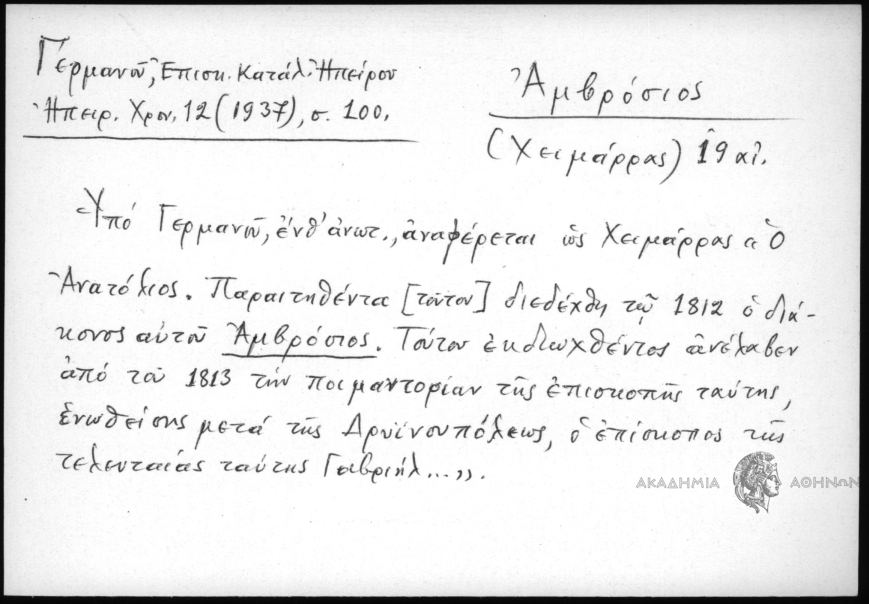 Γερμανοῦ, Ἐπισκ. Κατάλ. Ἠπείρου
Ἠπειρ. Χρον. 12 (1937), σ. 100.
Ἀμβρόσιος
(Χειμάρρας) 19 αἰ.
Ὑπό Γερμανοῦ, ἔνθ' ἀνωτ., ἀναφέρεται ὡς Χειμάρρας "Ὁ
Ἀνατόλιος. Παραιτηθέντα [τοῦτον] διεδέχθη τῷ 1812 ὁ διά-
κονος αὐτοῦ Ἀμβρόσιος. Τούτου ἐκδιωχθέντος ἀνέλαβεν
ἀπό τοῦ 1813 τήν ποιμαντορίαν τῆς ἐπισκοπῆς ταύτης,
ἑνωθείσης μετά τῆς Δρυϊνουπόλεως, ὁ ἐπίσκοπος τῆς
τελευταίας ταύτης Γαβριήλ...".
ΑΚΑΔΗΜΙΑ ΑΘΗΝΩΝ